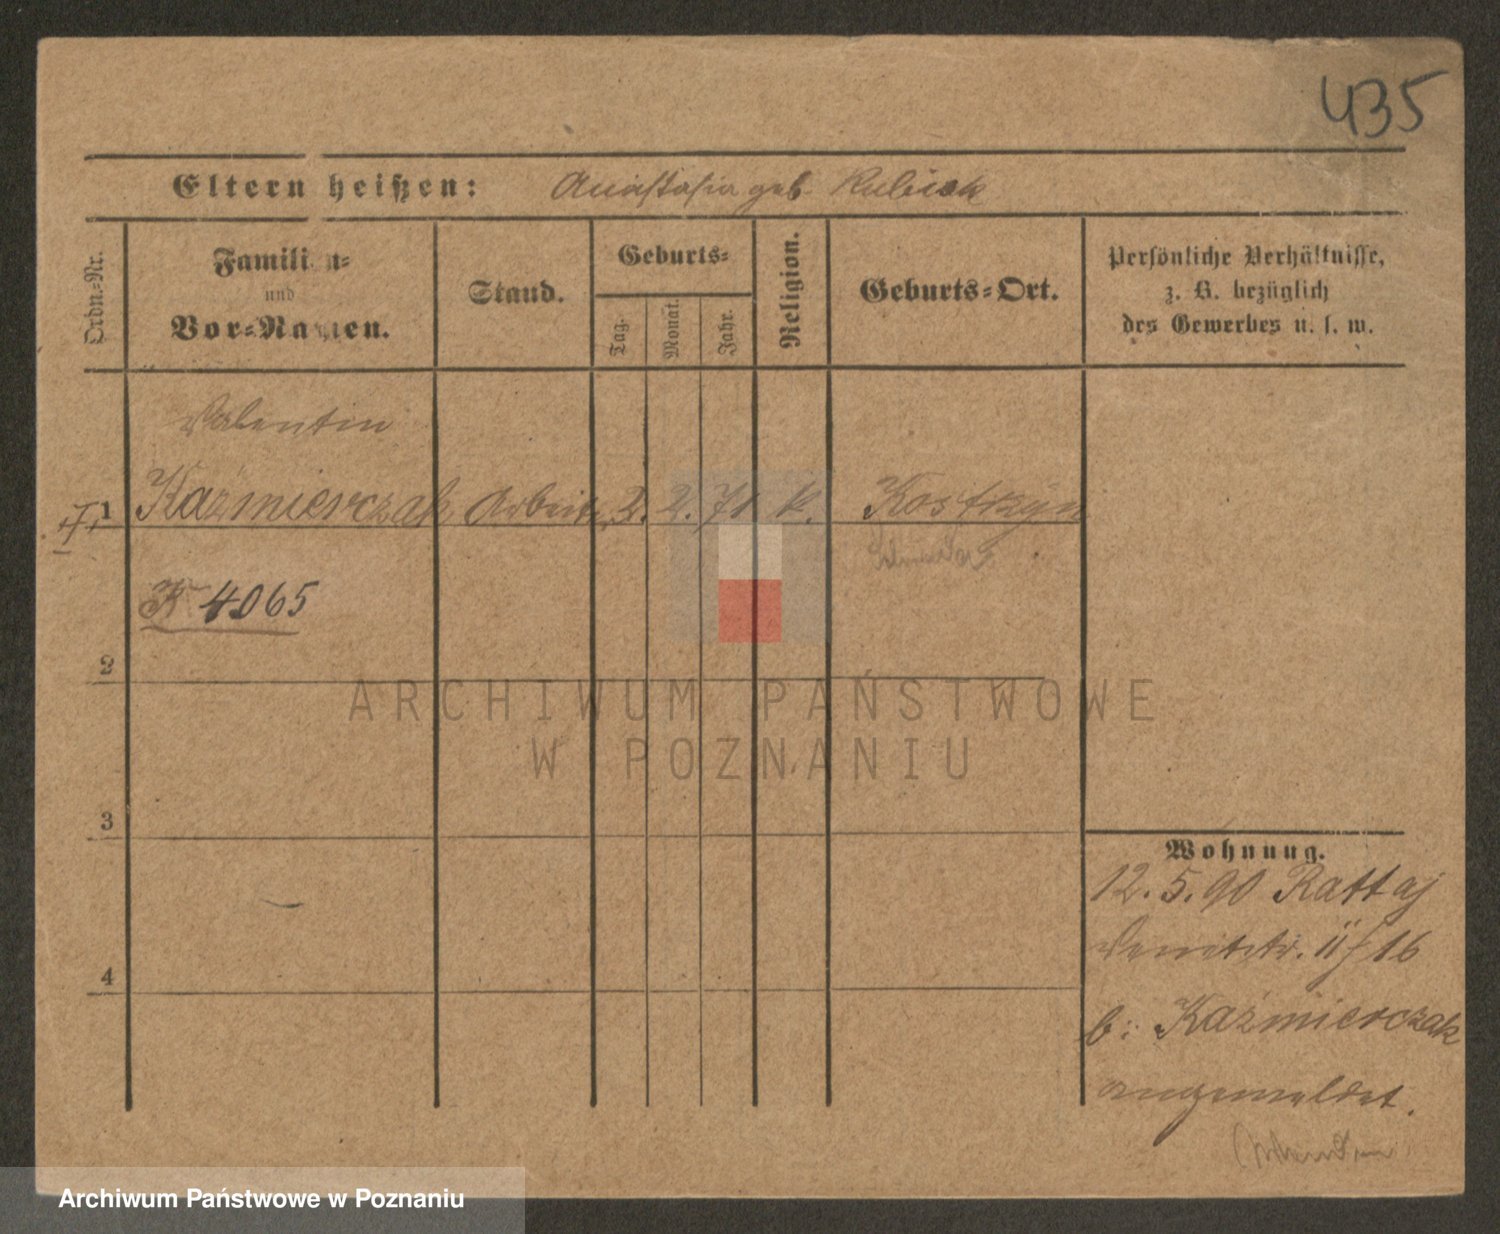 435
Eltern heißen: Anastasia geb. Kubiak
Ordn.-Nr.
Familien-
und
Vor-Namen.
Stand.
Geburts-
Tag.
Monat.
Jahr.
Religion.
Geburts-Ort.
Persönliche Verhältnisse,
z. B. bezüglich
des Gewerbes u. s. w.
Valentin
1 Kaźmierczak Arbeit. 2. 2. 71 k. Kostrzyn
K 4065
2
3
4
Wohnung.
12. 5. 90 Rattaj
II/16
b: Kaźmierczak
angemeldet.
ARCHIWUM PAŃSTWOWE
W POZNANIU
Archiwum Państwowe w Poznaniu